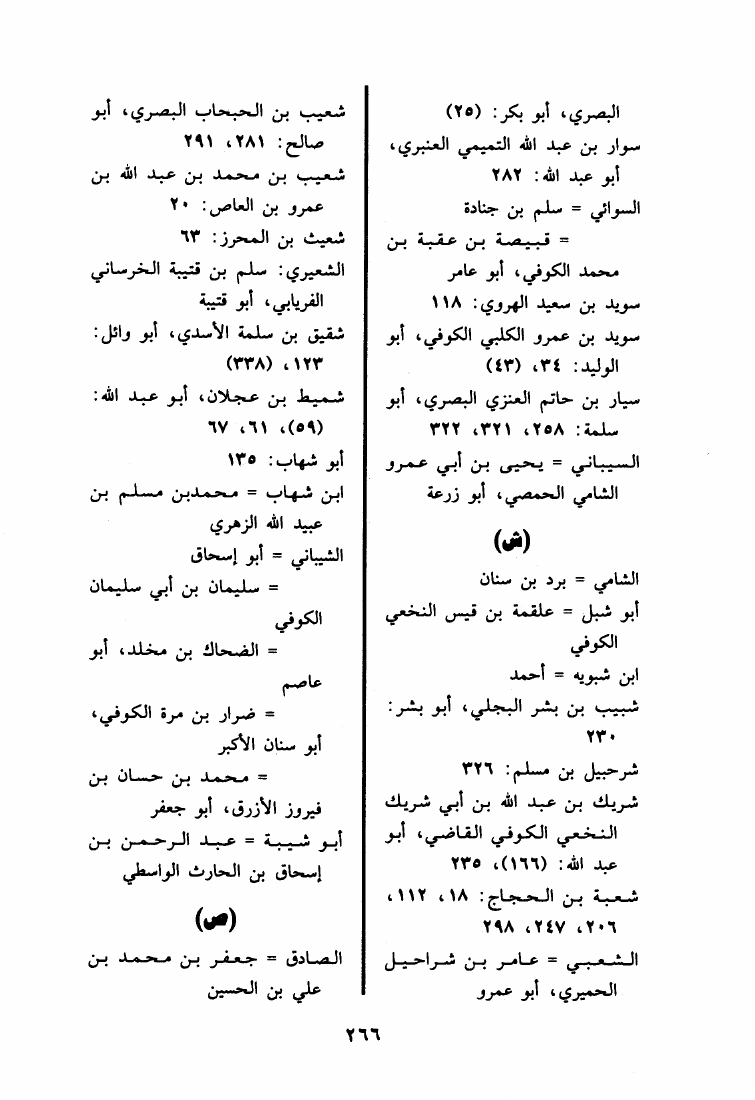 البصري، أبو بكر: (٢٥)
سوار بن عبد الله التميمي العنبري،
أبو عبد الله: ٢٨٢
السوائي = سلم بن جنادة
= قبيصة بن عقبة بن
محمد الكوفي، أبو عامر
سويد بن سعيد الهروي: ١١٨
سويد بن عمرو الكلبي الكوفي، أبو
الوليد: ٣٤، (٤٣)
سيار بن حاتم العنزي البصري، أبو
سلمة: ٢٥٨، ٣٢١، ٣٢٢
السيباني = يحيى بن أبي عمرو
الشامي الحمصي، أبو زرعة
(ش)
الشامي = برد بن سنان
أبو شبل = علقمة بن قيس النخعي
الكوفي
ابن شبويه = أحمد
شبيب بن بشر البجلي، أبو بشر:
٢٣٠
شرحبيل بن مسلم: ٣٢٦
شريك بن عبد الله بن أبي شريك
النخعي الكوفي القاضي، أبو
عبد الله: (١٦٦)، ٢٣٥
شعبة بن الحجاج: ١٨، ١١٢،
٢٠٦، ٢٤٧، ٢٩٨
الشعبي = عامر بن شراحيل
الحميري، أبو عمرو
شعيب بن الحبحاب البصري، أبو
صالح: ٢٨١، ٢٩١
شعيب بن محمد بن عبد الله بن
عمرو بن العاص: ٢٠
شعيث بن المحرز: ٦٣
الشعيري: سلم بن قتيبة الخرساني
الفريابي، أبو قتيبة
شقيق بن سلمة الأسدي، أبو وائل:
١٢٣، (٣٣٨)
شميط بن عجلان، أبو عبد الله:
(٥٩)، ٦١، ٦٧
أبو شهاب: ١٣٥
ابن شهاب = محمدبن مسلم بن
عبيد الله الزهري
الشيباني = أبو إسحاق
= سليمان بن أبي سليمان
الكوفي
= الضحاك بن مخلد، أبو
عاصم
= ضرار بن مرة الكوفي،
أبو سنان الأكبر
= محمد بن حسان بن
فيروز الأزرق، أبو جعفر
أبو شيبة = عبد الرحمن بن
إسحاق بن الحارث الواسطي
(ص)
الصادق = جعفر بن محمد بن
علي بن الحسين
٢٦٦